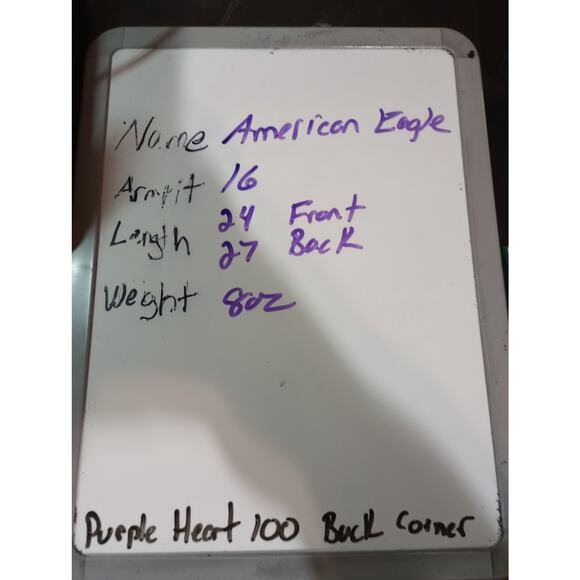 Name American Eagle
Armpit 16
Length 24 Front
27 Back
Weight 8oz
Purple Heart 100 Back Corner